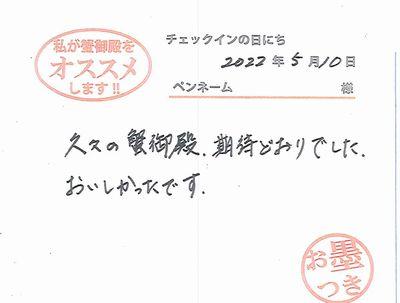 私が蟹御殿を
オススメ
します!!
チェックインの日にち
2022年5月10日
ペンネーム 様
久々の蟹御殿、期待どおりでした、
おいしかったです.
お墨
つき